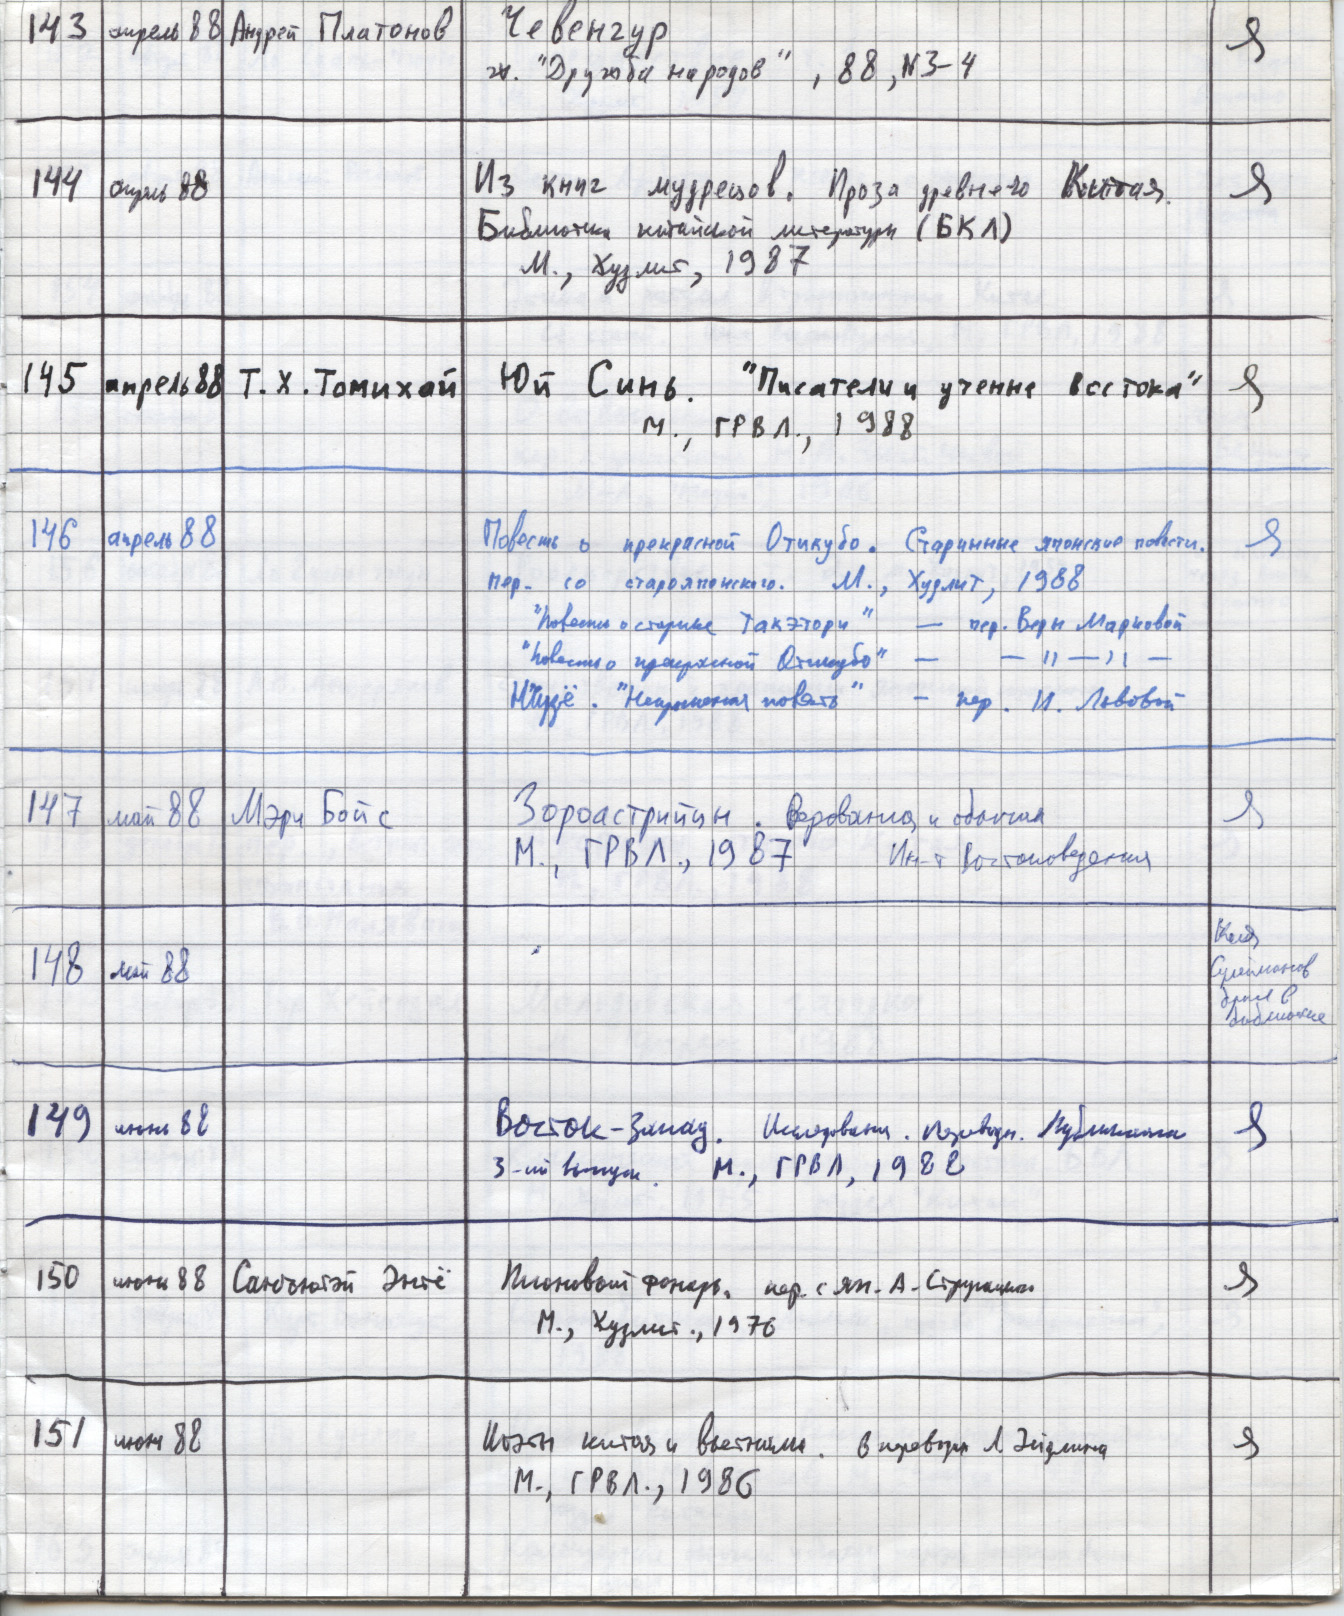 143 апрель 88 Андрей Платонов Чевенгур Я
ж. "Дружба народов", 88, N3-4
144 апрель 88 Из книг мудрецов. Проза древнего Китая. Я
Библиотека китайской литературы (БКЛ)
М., Худлит, 1987
145 апрель 88 Т. Х. Томихай Юй Синь. "Писатели и ученые востока" Я
М., ГРВЛ., 1988
146 апрель 88 Повесть о прекрасной Отикубо. Старинные японские повести. Я
пер. со старояпонского. М., Худлит, 1988
"Повесть о старике Такэтори" — пер. Веры Марковой
"Повесть о прекрасной Отикубо" — — " — " —
Нидзё. "Непрошеная повесть" — пер. И. Львовой
147 май 88 Мэри Бойс Зороастрийцы. Верования и обычаи Я
М., ГРВЛ., 1987 Ин-т Востоковедения
148 май 88 Коля
Сулейманов
брал в
библиотеке
149 июнь 88 Восток-Запад. Исследования. Переводы. Публикации Я
3-ий выпуск. М., ГРВЛ, 1988
150 июнь 88 Санъютэй Энтё Пионовый фонарь. пер. с яп. А. Стругацкого Я
М., Худлит., 1976
151 июнь 88 Поэты китая и вьетнама. в переводах Л. Эйдлина Я
М., ГРВЛ., 1986